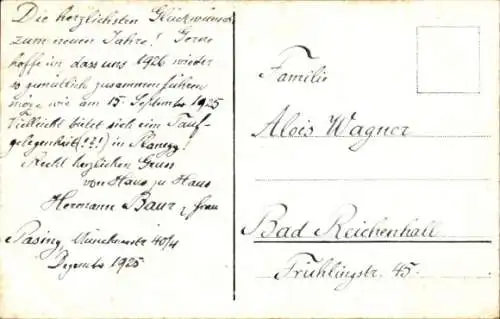 Die herzlichsten Glückwünsche
zum neuen Jahre! Gerne
hoffe ich dass uns 1926 wieder
so gemütlich zusammenführen
möge wie am 15. September 1925
Vielleicht bietet sich eine Tauf-
gelegenheit (?!) in Planegg!
Recht herzlichen Gruss
von Haus zu Haus
Hermann Baur & Frau
Pasing, 40/1
Dezember 1925
Familie
Alois Wagner
Bad Reichenhall
Frühlingstr. 45.